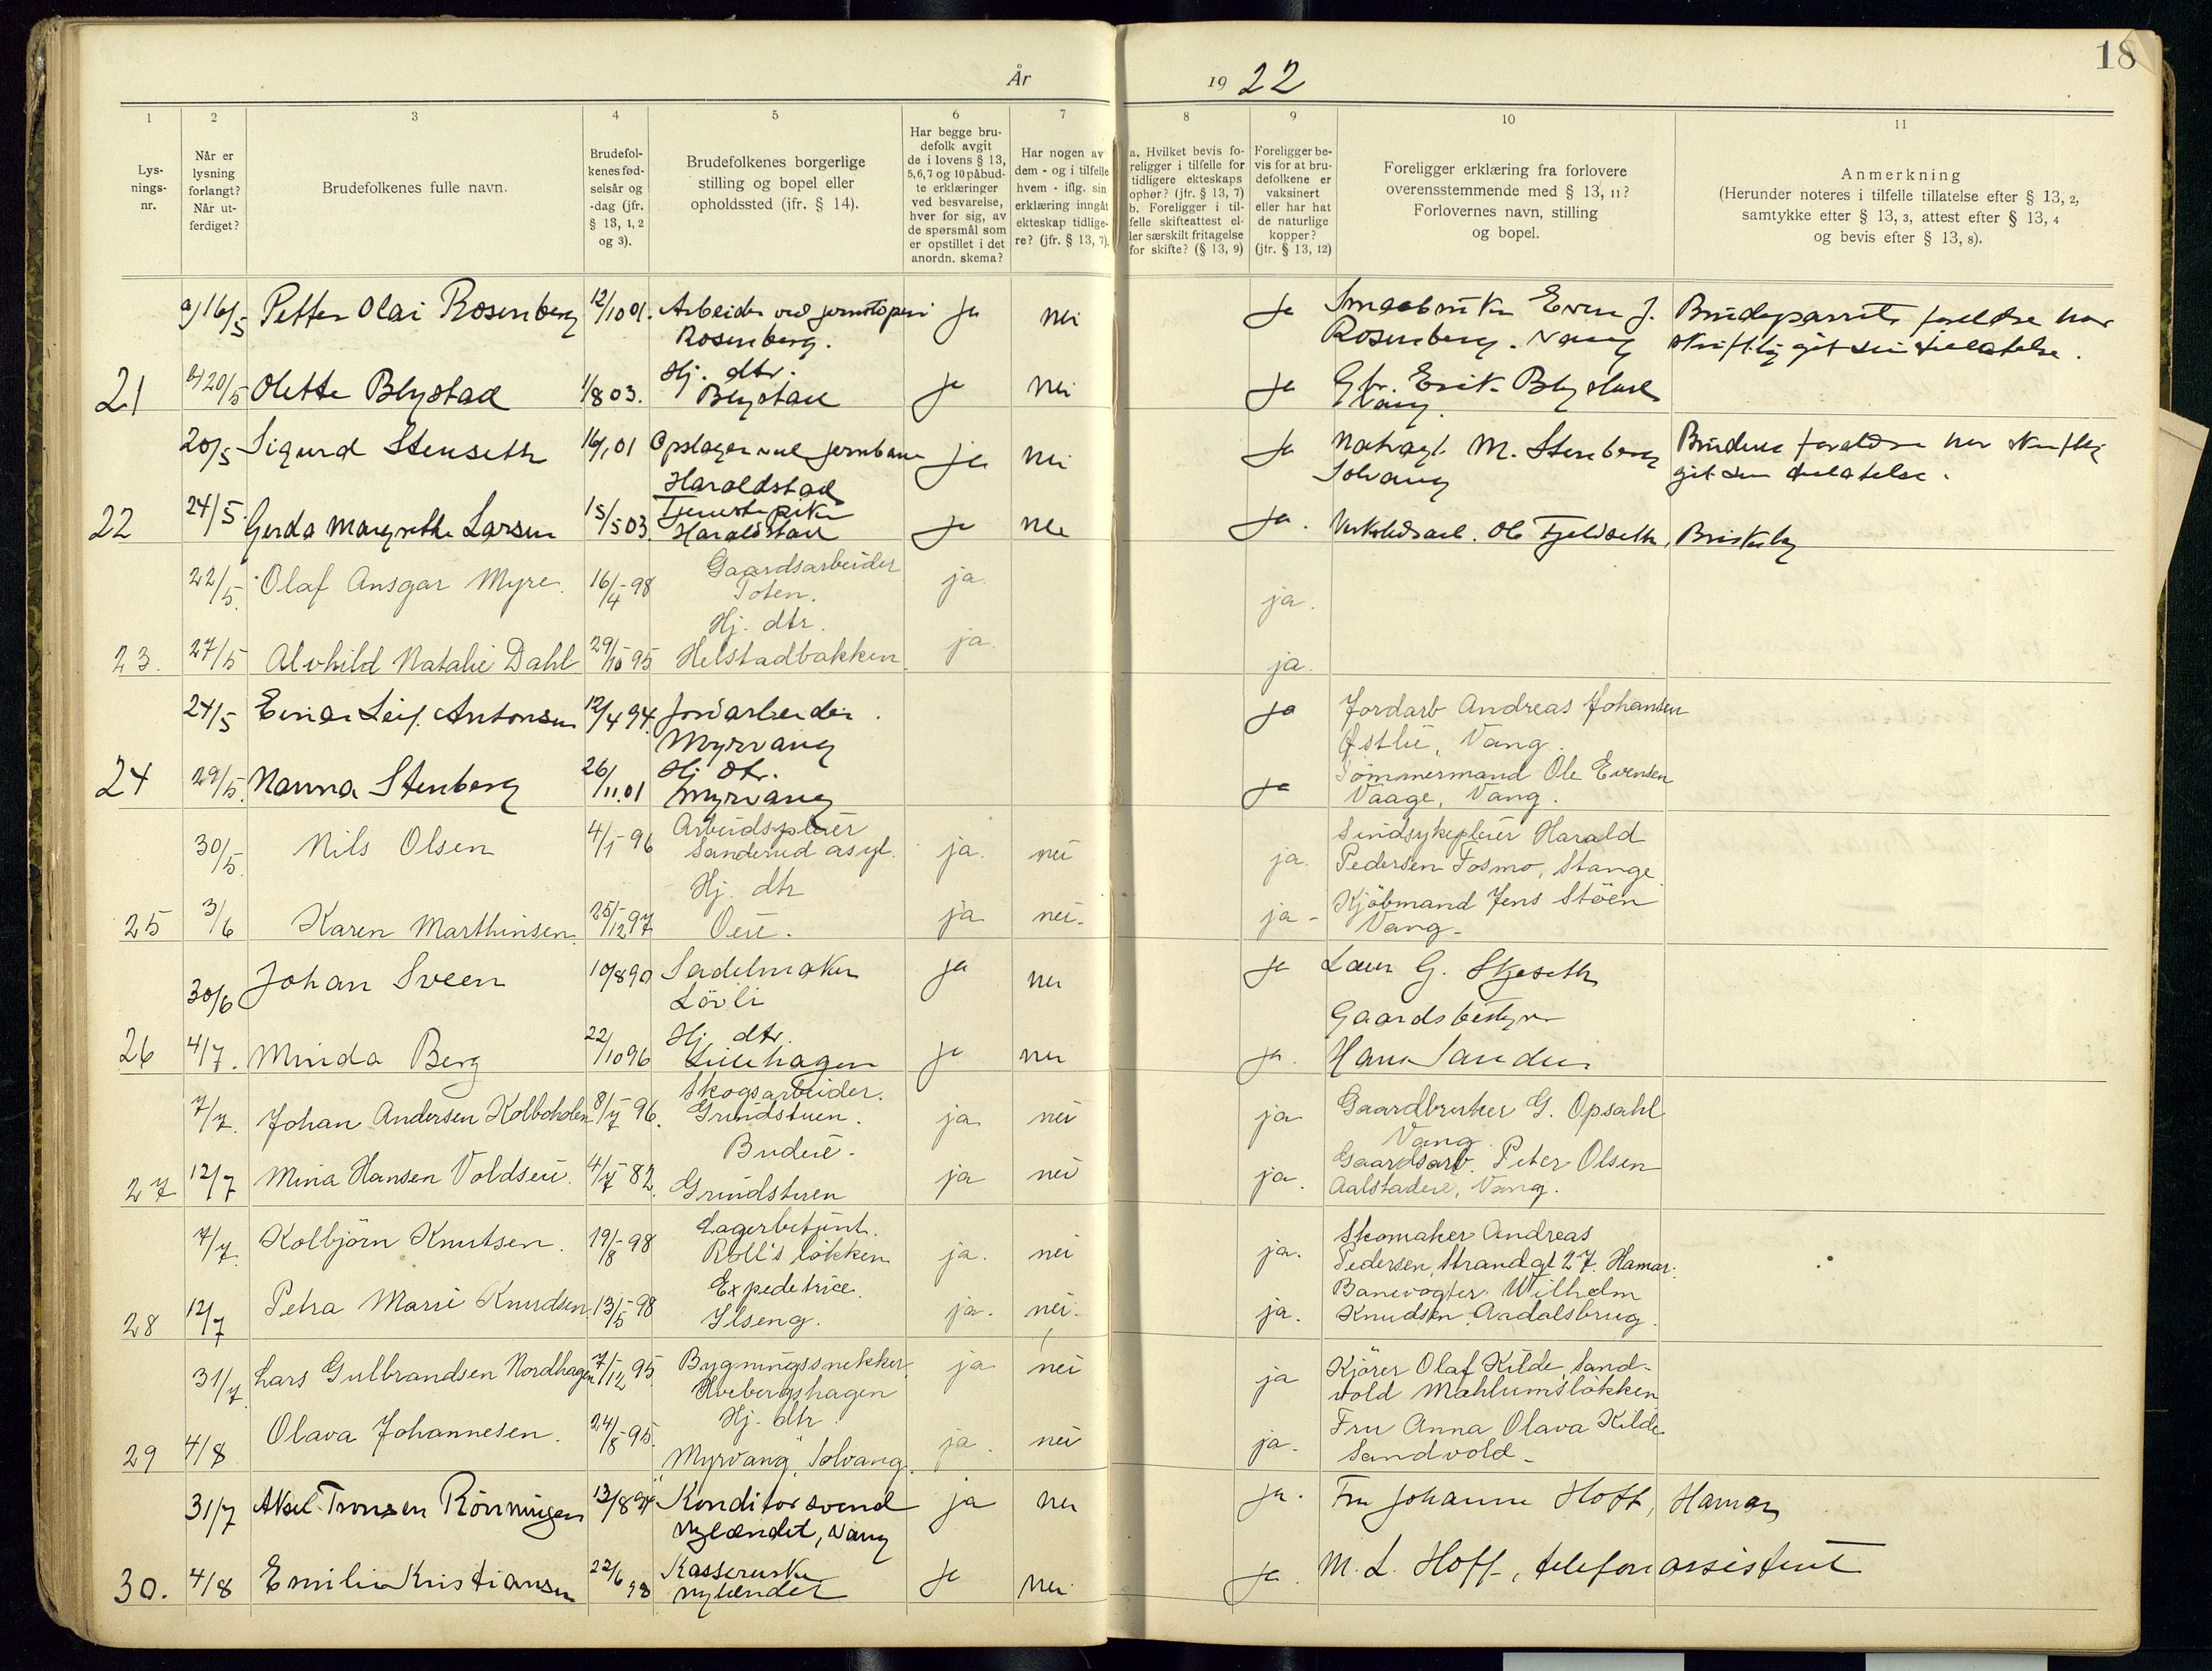 18
År 1922
1 2 3 4 5 6 7 8 9 10 11
Lys-
nings-
nr.
Når er
lysning
forlangt?
Når ut-
ferdiget?
Brudefolkenes fulle navn.
Brudefol-
kenes fød-
selsår og
-dag (jfr.
§ 13, 1, 2
og 3).
Brudefolkenes borgerlige
stilling og bopel eller
opholdssted (jfr. § 14).
Har begge bru-
defolk avgit
de i lovens § 13,
5,6,7 og 10 påbud-
te erklæringer
ved besvarelse,
hver for sig, av
de spørsmål som
er opstillet i det
anordn. skema?
Har nogen av
dem - og i tilfelle
hvem - iflg. sin
erklæring inngåt
ekteskap tidlige-
re? (jfr. § 13, 7).
a. Hvilket bevis fo-
religger i tilfelle for
tidligere ekteskaps
ophør? (jfr. § 13, 7)
b. Foreligger i til-
felle skifteattest el-
ler særskilt fritagelse
for skifte? (§ 13, 9)
Foreligger be-
vis for at bru-
defolkene er
vaksinert
eller har hat
de naturlige
kopper?
(jfr. § 13, 12)
Foreligger erklæring fra forlovere
overensstemmende med § 13, 11?
Forlovernes navn, stilling
og bopel.
Anmerkning
(Herunder noteres i tilfelle tillatelse efter § 13, 2,
samtykke efter § 13, 3, attest efter § 13, 4
og bevis efter § 13, 8).
16/5 Petter Olai Rosenberg 12/10 01. Arbeider ved jernstøperi ja nei ja Smaabruker Even J. Brudeparrets forældre har
Rosenberg. Rosenberg. Vang skriftlig git sin tillatelse.
21 20/5 Olette Blystad 1/8 03. Hj. dtr. ja nei ja Gbr. Erik Blystad
Blystad Vang.
20/5 Sigurd Stenseth 16/1 01 Opslager ved jernbane ja nei ja M. Stenberg Brudens forældre har skriftlig
Haraldstad Solvang git sin tillatelse.
22 24/5. Gerda Margrethe Larsen 15/5 03. Tjenestepike ja nei ja. Ole Fjeldseth, Briskeby
Haraldstad
22/5. Olaf Ansgar Myre. 16/4-98 Gaardsarbeider ja. ja.
Toten.
23. 27/5 Alvhild Natalie Dahl 29/10-95 Hj. dtr. ja ja.
Helstadbakken
24/5 Einar Leif Antonsen 12/4 94. Jordarbeider. ja Jordarb Andreas Johansen
Myrvang Østlie, Vang.
24 29/5. Nanna Stenberg 26/11.01 Hj. dtr. ja Tömmermand Ole Evensen
Myrvang Vaage, Vang.
30/5. Nils Olsen 4/1-96 Arbeidspleier ja. nei ja. Sindsykepleier Harald
Sanderud asyl. Pedersen Fosmo, Stange.
25 3/6 Karen Marthinsen. 25/12-97 Hj. dtr ja nei. ja - Kjöbmand Jens Stöen
Oeie. Vang.
30/6 Johan Sveen 10/8 90 Sadelmaker ja nei ja Laur G. Skjeseth
Lövli Gaardsbestyrer
26 4/7. Minda Berg 22/10 96 Hj. dtr. ja nei ja. Hans Sander
Lillehagen
7/7. Johan Andersen Kolboholen 8/7-96. Skogsarbeider. ja nei ja Gaardbruker G. Opsahl
Grindstuen. Vang.
27 12/7 Mina Hansen Voldseie. 4/7-82. Budeie. ja nei ja. Gaardsarb. Peter Olsen
Grindstuen Aalstadeie, Vang.
7/7. Kolbjörn Knutsen. 19/8-98 Lagerbetjent. ja. nei ja. Skomaker Andreas
Roll's lökken Pedersen, Strandgt 27. Hamar.
28 12/7 Petra Marie Knudsen. 13/5-98 Expeditrice. ja. nei. ja. Banevogter Wilhelm
Ilseng. Knudsen. Aadalsbrug.
31/7. Lars Gulbrandsen Nordhagen 7/12-95 Bygningssnekker ja nei ja Kjörer Olaf Kilde, Sand-
Hvebergshagen vold Mæhlumslökken
29 4/8 Olava Johannesen. 24/8-95. Hj. dtr. ja. nei ja. Fru Anna Olava Kilde
"Myrvang", Solvang. Sandvold.
31/7 Aksel Tronsen Rönningen 13/8 94 Konditorsvend ja nei ja. Fru Johanne Hoff, Hamar
Nylændet, Vang
30. 4/8 Emilie Kristiansen 22/6 98 Kassererske ja nei. ja. M. L. Hoff, telefonassistent
Nylændet